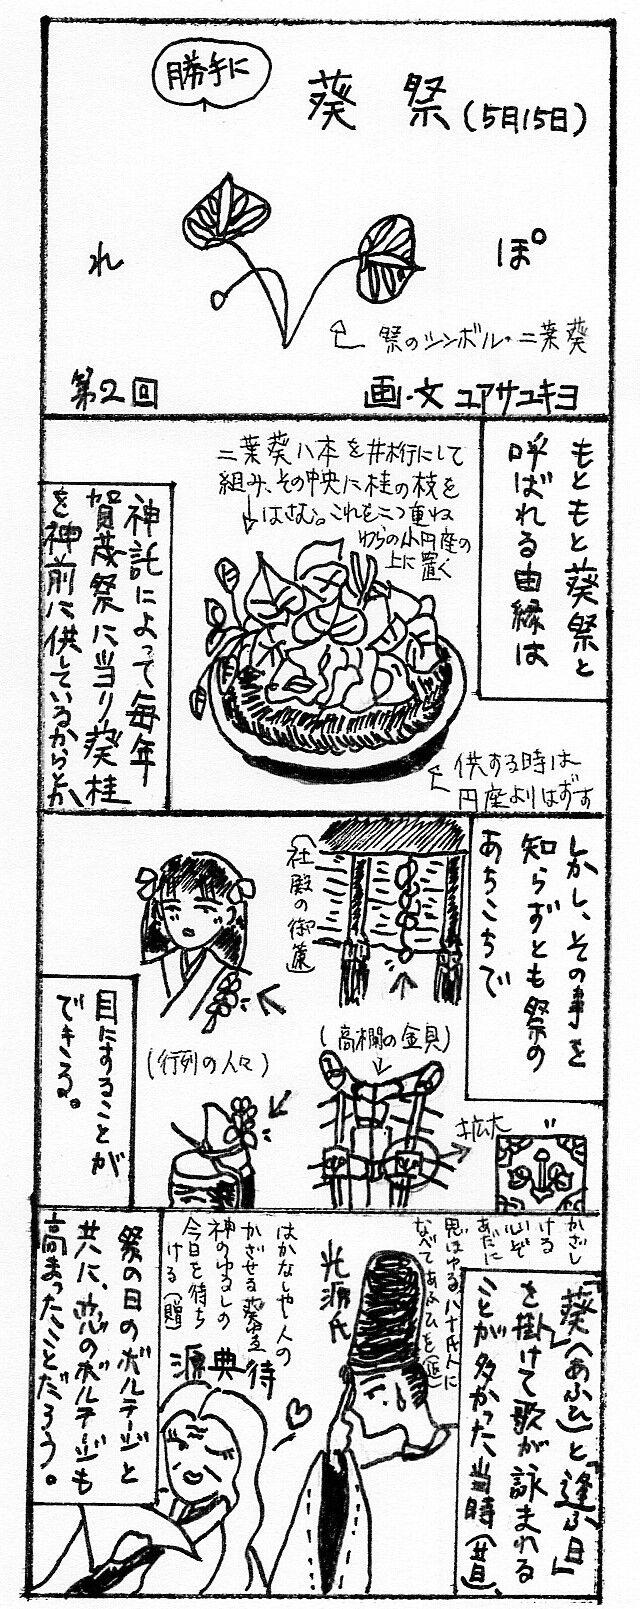 勝手に
葵祭(5月15日)
れ
ぽ
祭のシンボル・二葉葵
第2回
画・文 ユアサユキヨ
もともと葵祭と
呼ばれる由縁は
二葉葵八本を井桁にして
組み、その中央に桂の枝を
はさむ。これを二つ重ね
わらの小円座の
上に置く
神託によって毎年
賀茂祭に当り葵桂
を神前に供しているからとか
供する時は
円座よりはずす
しかし、その事を
知らずとも祭の
あちこちで
(社殿の御簾)
(高欄の金具)
拡大
(行列の人々)
目にすることが
できる。
「葵(あふひ)」と「逢ふ日」
を掛けて歌が詠まれる
ことが多かった当時(昔)、
かざし
ける
心ぞ
あだに
思ほゆる八十氏人に
なべてあふひを(返)
光源氏
はかなしや人の
かざせる葵ゆえ
神のゆるしの
今日を待ち
ける(贈)
源典侍
祭の日のボルテージと
共に、恋のボルテージも
高まったことだろう。